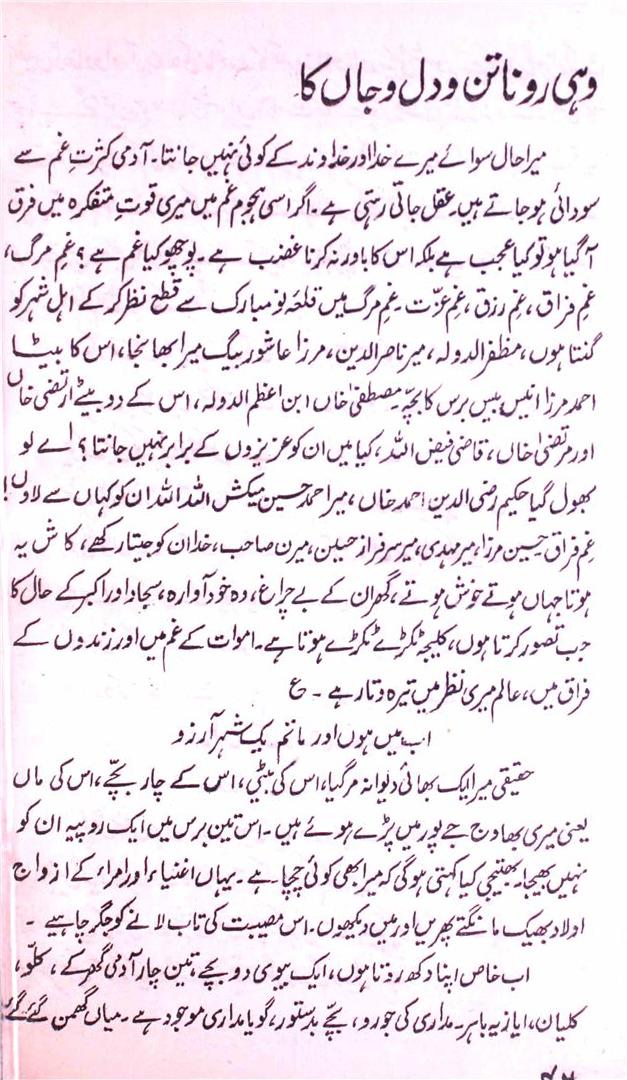 وہی رونا تن و دل و جاں کا
میرا حال سوائے میرے خدا اور خداوند کے کوئی نہیں جانتا۔ آدمی کثرتِ غم سے
سودائی ہو جاتے ہیں۔ عقل جاتی رہتی ہے۔ اگر اسی ہجومِ غم میں میری قوتِ متفکرہ میں فرق
آ گیا ہو تو کیا عجب ہے بلکہ اس کا باور نہ کرنا غضب ہے۔ پوچھو کیا غم ہے؟ غمِ مرگ،
غمِ فراق، غمِ رزق، غمِ عزّت۔ غمِ مرگ میں قلعۂ نو مبارک سے قطع نظر کر کے اہلِ شہر کو
گنتا ہوں، مظفر الدولہ، میر ناصر الدین، مرزا عاشور بیگ میرا بھانجا، اس کا بیٹا
احمد مرزا انیس بیس برس کا بچہ۔ مصطفیٰ خاں ابن اعظم الدولہ، اس کے دو بیٹے ارتضیٰ خاں
اور مرتضیٰ خاں، قاضی فیض اللہ، کیا میں ان کو عزیزوں کے برابر نہیں جانتا؟ اے لو
بھول گیا حکیم رضی الدین احمد خاں، میر احمد حسین میکش اللہ اللہ ان کو کہاں سے لاؤں!
غمِ فراق حسین مرزا، میر مہدی، میر سرفراز حسین، میرن صاحب، خدا ان کو جیتا رکھے، کاش یہ
ہوتا جہاں ہوتے خوش ہوتے، گھر ان کے بے چراغ، وہ خود آوارہ، سجاد اور اکبر کے حال کا
جب تصور کرتا ہوں، کلیجہ ٹکڑے ٹکڑے ہوتا ہے۔ اموات کے غم میں اور زندوں کے
فراق میں، عالم میری نظر میں تیرہ و تار ہے۔ ع
اب میں ہوں اور ماتم یک شہر آرزو
حقیقی میرا ایک بھائی دیوانہ مر گیا، اس کی بیٹی، اس کے چار بچّے، اس کی ماں
یعنی میری بھاوج جے پور میں پڑے ہوئے ہیں۔ اس تین برس میں ایک روپیہ ان کو
نہیں بھیجا۔ بھتیجی کیا کہتی ہو گی کہ میرا بھی کوئی چچا ہے۔ یہاں اغنیاء اور امراء کے ازواج
اولاد بھیک مانگتے پھریں اور میں دیکھوں۔ اس مصیبت کی تاب لانے کو جگر چاہیے۔
اب خاص اپنا دکھ روتا ہوں، ایک بیوی دو بچّے، تین چار آدمی گھر کے، کلّو،
کلیان، ایاز یہ باہر۔ مداری کی جورو، بچّے بدستور، گویا مداری موجود ہے۔ میاں گھمن گئے گئے